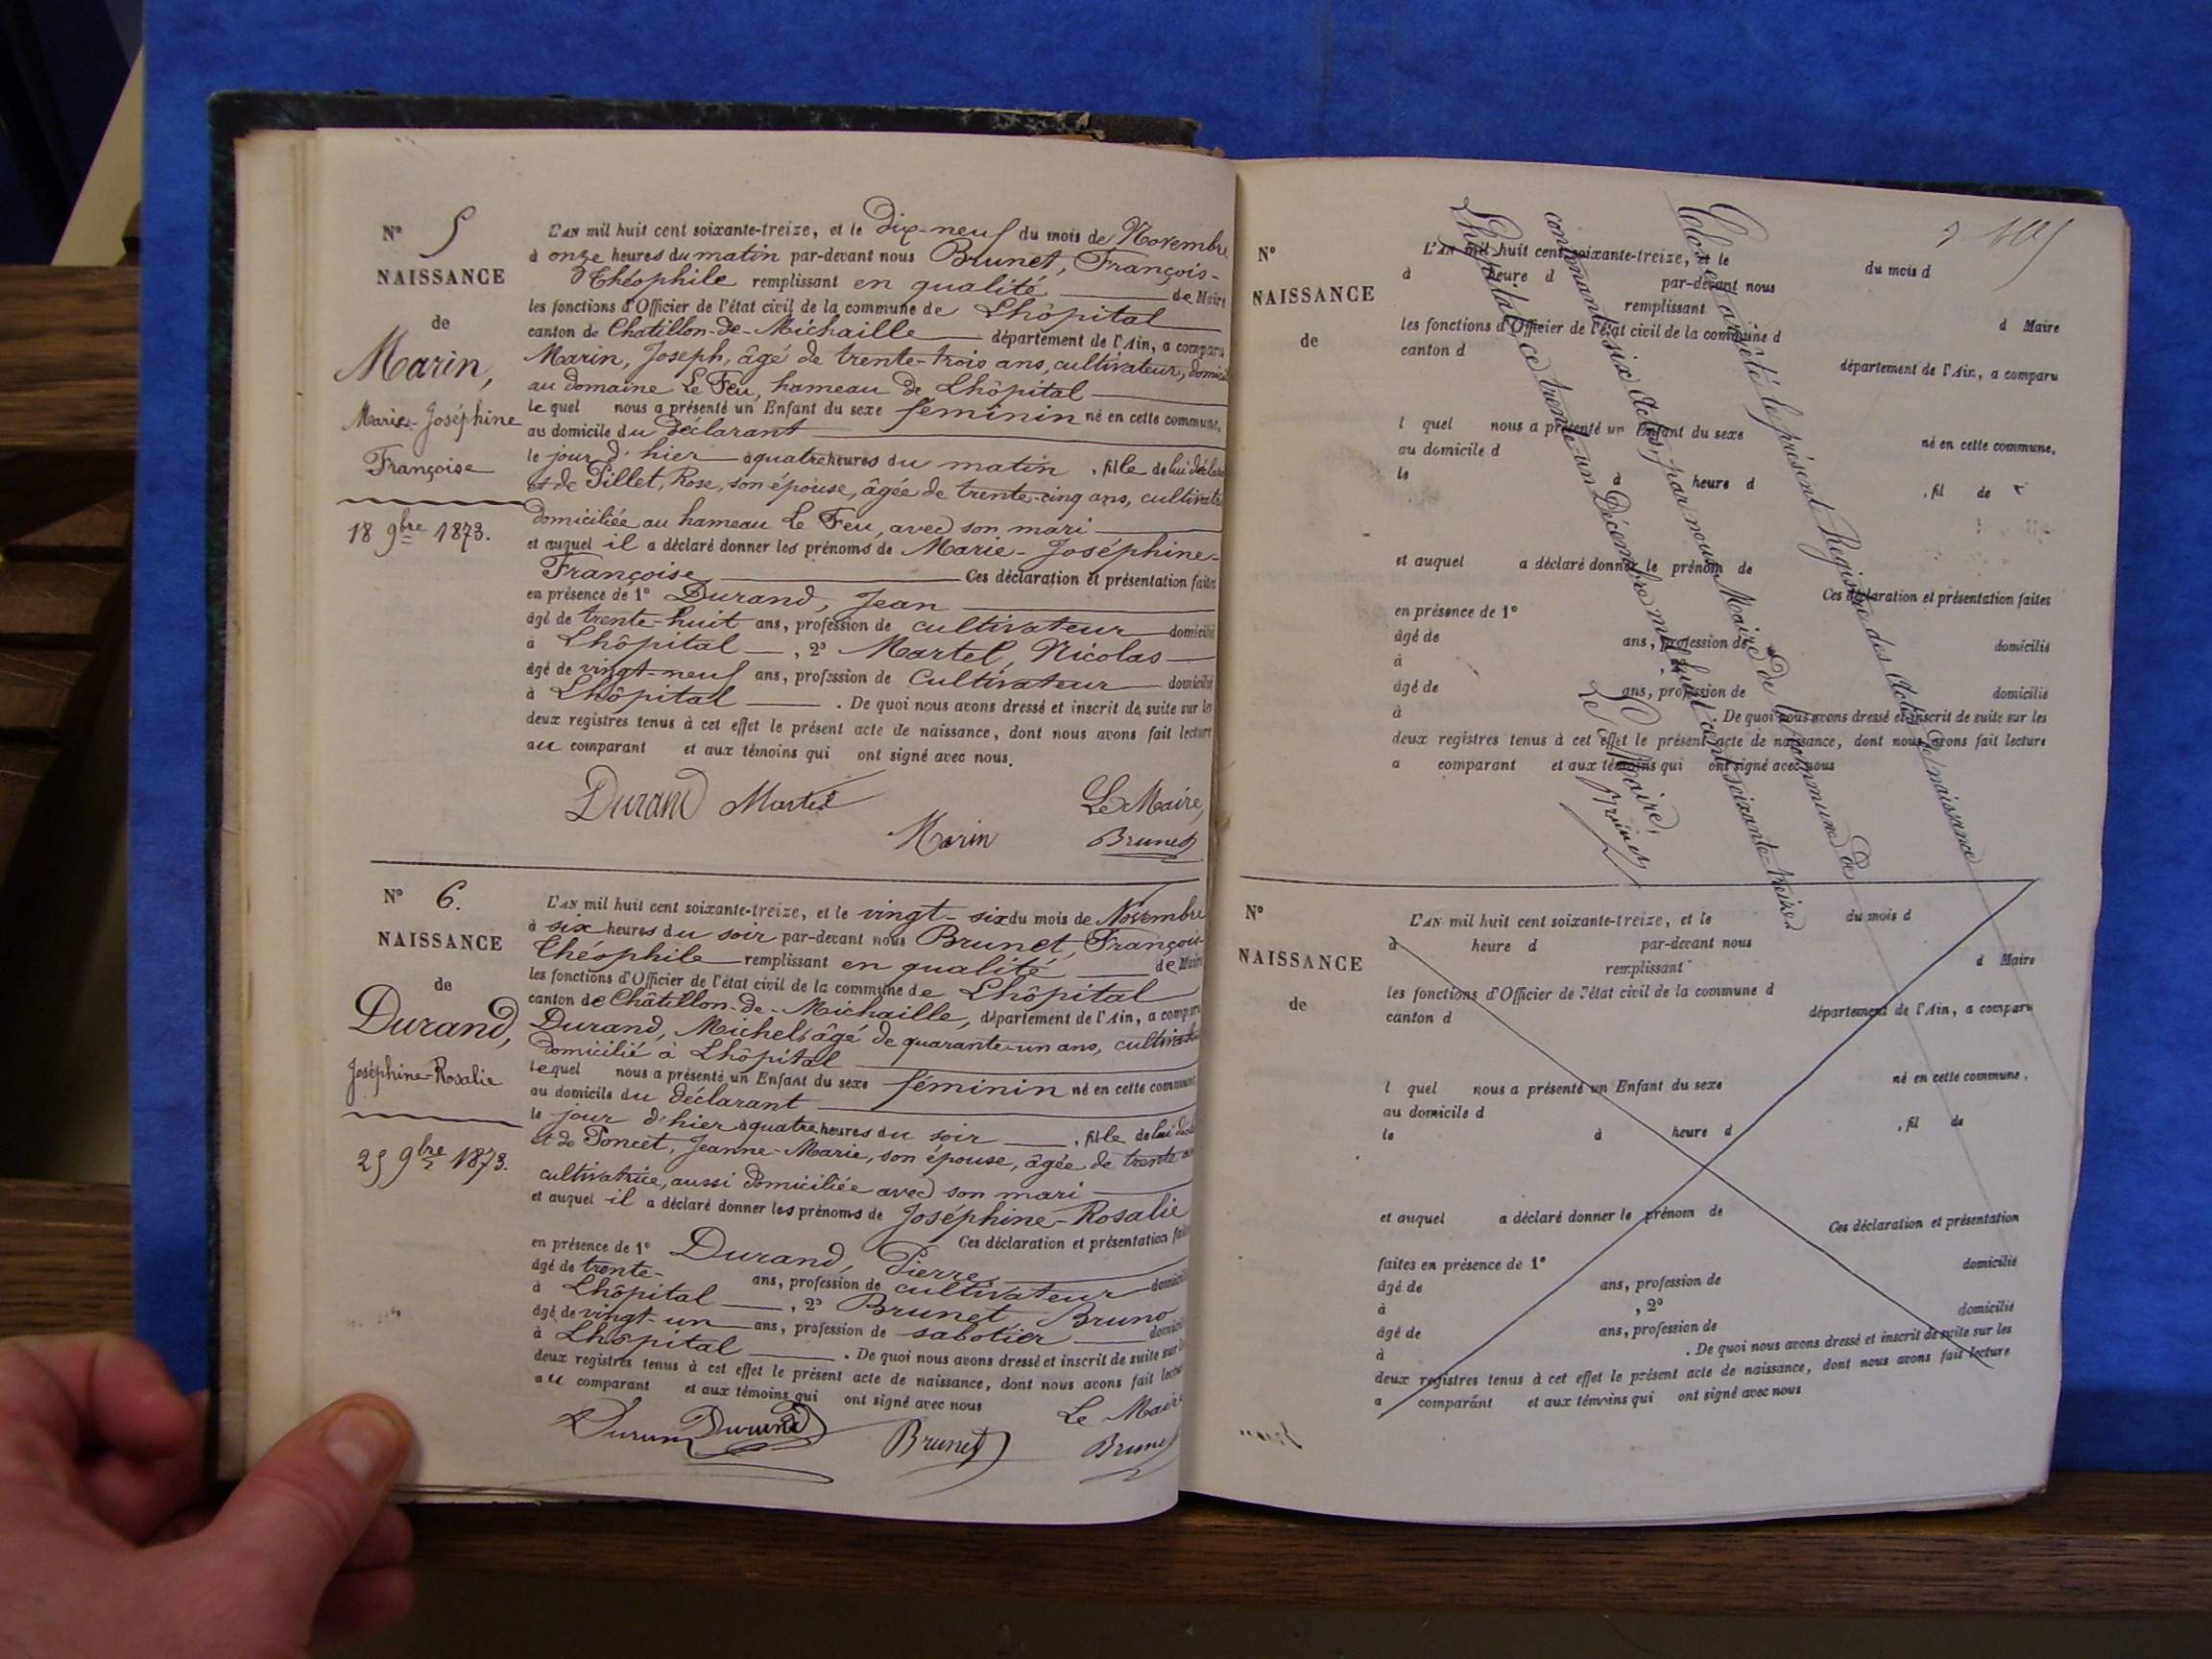 N° 5
NAISSANCE
de
Marin,
Marie-Joséphine
Françoise
18 9bre 1873.
L'AN mil huit cent soixante-treize, et le Dix-neuf du mois de Novembre
à onze heures du matin par-devant nous Brunet, François-
Théophile remplissant en qualité de Maire
les fonctions d'Officier de l'état civil de la commune de Lhôpital
canton de Chatillon-de-Michaille département de l'Ain, a comparu
Marin, Joseph, âgé de trente-trois ans, cultivateur, domici
au domaine Le Feu, hameau de Lhôpital
lequel nous a présenté un Enfant du sexe féminin né en cette commune,
au domicile du déclarant
le jour d'hier à quatre heures du matin , fille de lui décla
et de Pillet, Rose, son épouse, âgée de trente-cinq ans, cultivat
domiciliée au hameau Le Feu, avec son mari
et auquel il a déclaré donner les prénoms de Marie-Joséphine-
Françoise Ces déclaration et présentation faites
en présence de 1° Durand, Jean
âgé de trente-huit ans, profession de cultivateur domicilié
à Lhôpital , 2° Martel, Nicolas
âgé de vingt-neuf ans, profession de Cultivateur domicilié
à Lhôpital . De quoi nous avons dressé et inscrit de suite sur les
deux registres tenus à cet effet le présent acte de naissance, dont nous avons fait lecture
au comparant et aux témoins qui ont signé avec nous.
Durand Martel Le Maire,
Marin Brunet
N° 6.
NAISSANCE
de
Durand,
Joséphine-Rosalie
25 9bre 1873.
L'AN mil huit cent soixante-treize, et le vingt-six du mois de Novembre
à six heures du soir par-devant nous Brunet, François-
Théophile remplissant en qualité de Maire
les fonctions d'Officier de l'état civil de la commune de Lhôpital
canton de Châtillon-de-Michaille, département de l'Ain, a comparu
Durand, Michel, âgé de quarante-un ans, cultivat
domicilié à Lhôpital
lequel nous a présenté un Enfant du sexe féminin né en cette commune
au domicile du déclarant
le jour d'hier à quatre heures du soir , fille de lui décla
et de Poncet, Jeanne-Marie, son épouse, âgée de trente an
cultivatrice, aussi domiciliée avec son mari
et auquel il a déclaré donner les prénoms de Joséphine-Rosalie
Ces déclaration et présentation fait
en présence de 1° Durand, Pierre
âgé de trente- ans, profession de cultivateur domicilié
à Lhôpital , 2° Brunet, Bruno
âgé de vingt-un ans, profession de sabotier domici
à Lhôpital . De quoi nous avons dressé et inscrit de suite sur
deux registres tenus à cet effet le présent acte de naissance, dont nous avons fait lecture
au comparant et aux témoins qui ont signé avec nous
Le Maire
Durand Durand Brunet Brunet
N°
NAISSANCE
de
L'AN mil huit cent soixante-treize, et le du mois d
à heure d par-devant nous
remplissant d Maire
les fonctions d'Officier de l'état civil de la commune d
canton d département de l'Ain, a comparu
l quel nous a présenté un Enfant du sexe né en cette commune,
au domicile d
le à heure d , fil de
et auquel a déclaré donner le prénom de
Ces déclaration et présentation faites
en présence de 1°
âgé de ans, profession de domicilié
à
âgé de ans, profession de domicilié
à De quoi nous avons dressé et inscrit de suite sur les
deux registres tenus à cet effet le présent acte de naissance, dont nous avons fait lecture
a comparant et aux témoins qui ont signé avec nous
Clos et arrêté le présent Registre des Actes de naissance
contenant six Actes, par nous Maire de la commune de
Lhôpital, ce trente-un Décembre mil huit cent soixante-treize
Le Maire,
Brunet
N°
NAISSANCE
de
L'AN mil huit cent soixante-treize, et le du mois d
à heure d par-devant nous
remplissant d Maire
les fonctions d'Officier de l'état civil de la commune d
canton d département de l'Ain, a comparu
l quel nous a présenté un Enfant du sexe né en cette commune,
au domicile d
le à heure d , fil de
et auquel a déclaré donner le prénom de
Ces déclaration et présentation
faites en présence de 1° domicilié
âgé de ans, profession de
à , 2° domicilié
âgé de ans, profession de
à . De quoi nous avons dressé et inscrit de suite sur les
deux registres tenus à cet effet le présent acte de naissance, dont nous avons fait lecture
a comparant et aux témoins qui ont signé avec nous